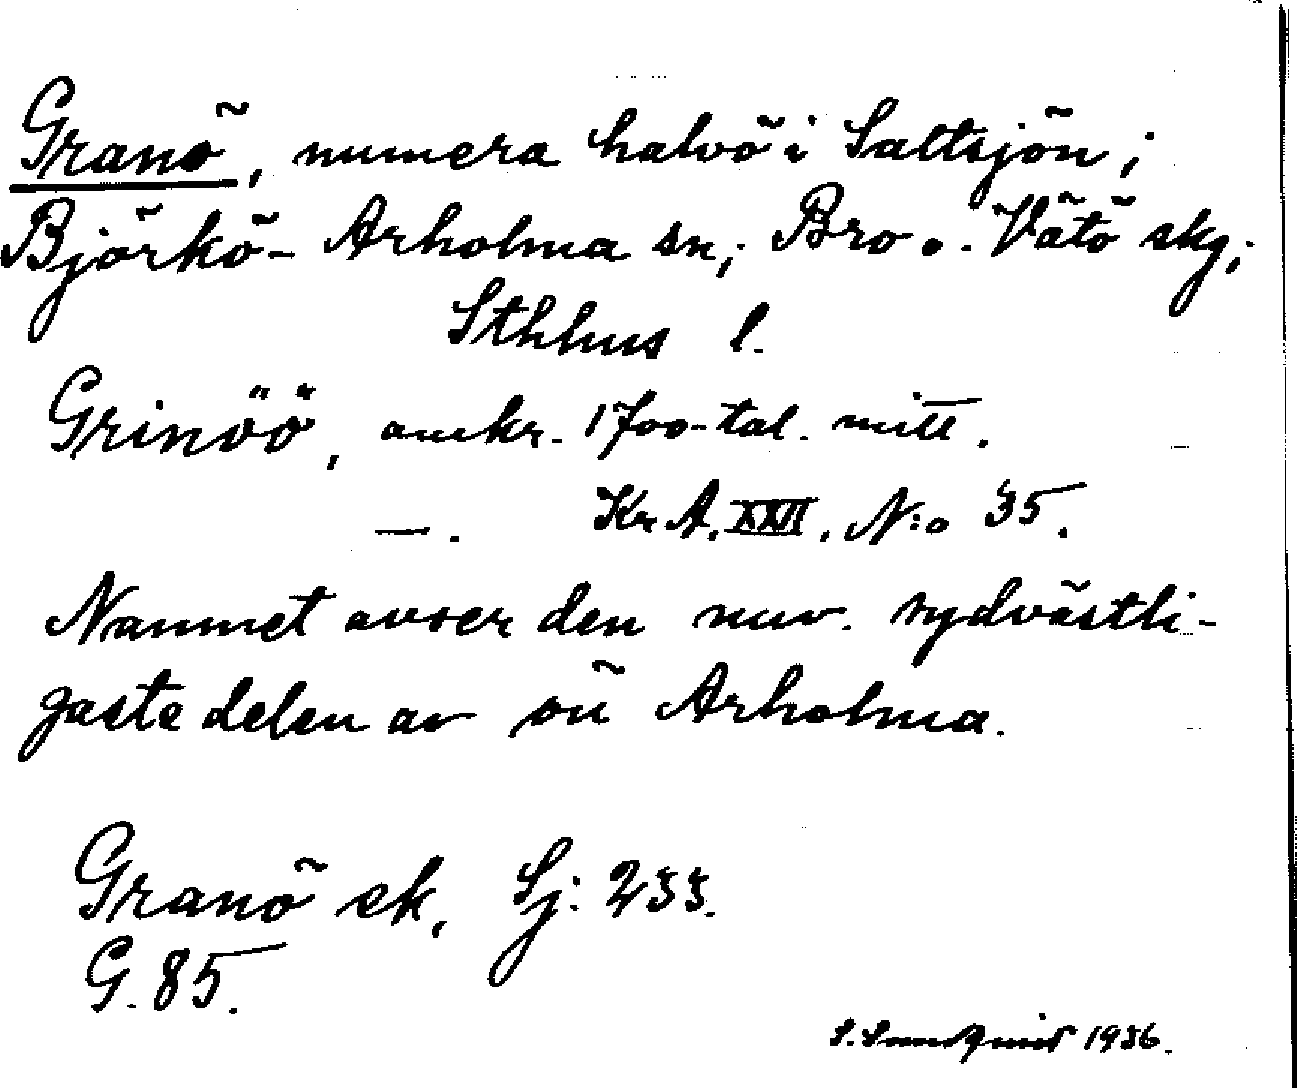 Granö, numera halvö i Saltsjön;
Björkö-Arholma sn; Bro o. Vätö skg;
Sthlms l.
Grinöö, omkr. 1700-tal. mitt.
—. Kr A. XXII. N:o 35.
Namnet avser den nuv. sydvästli-
gaste delen av ön Arholma.
Granö ek, Sj: 233.
G. 85.
S. 1936.